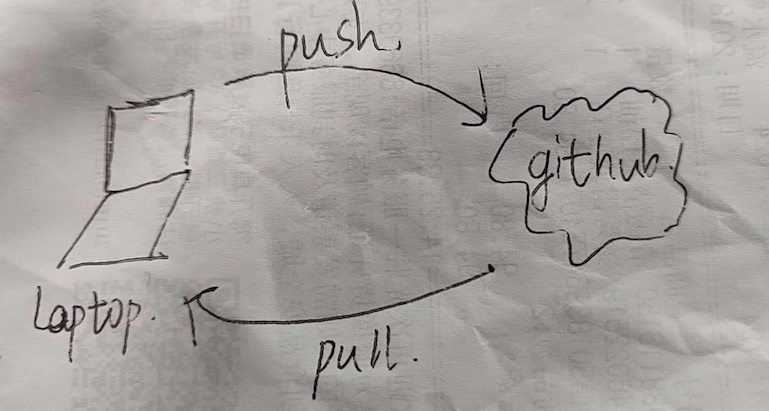 push.
github.
Laptop.
pull.